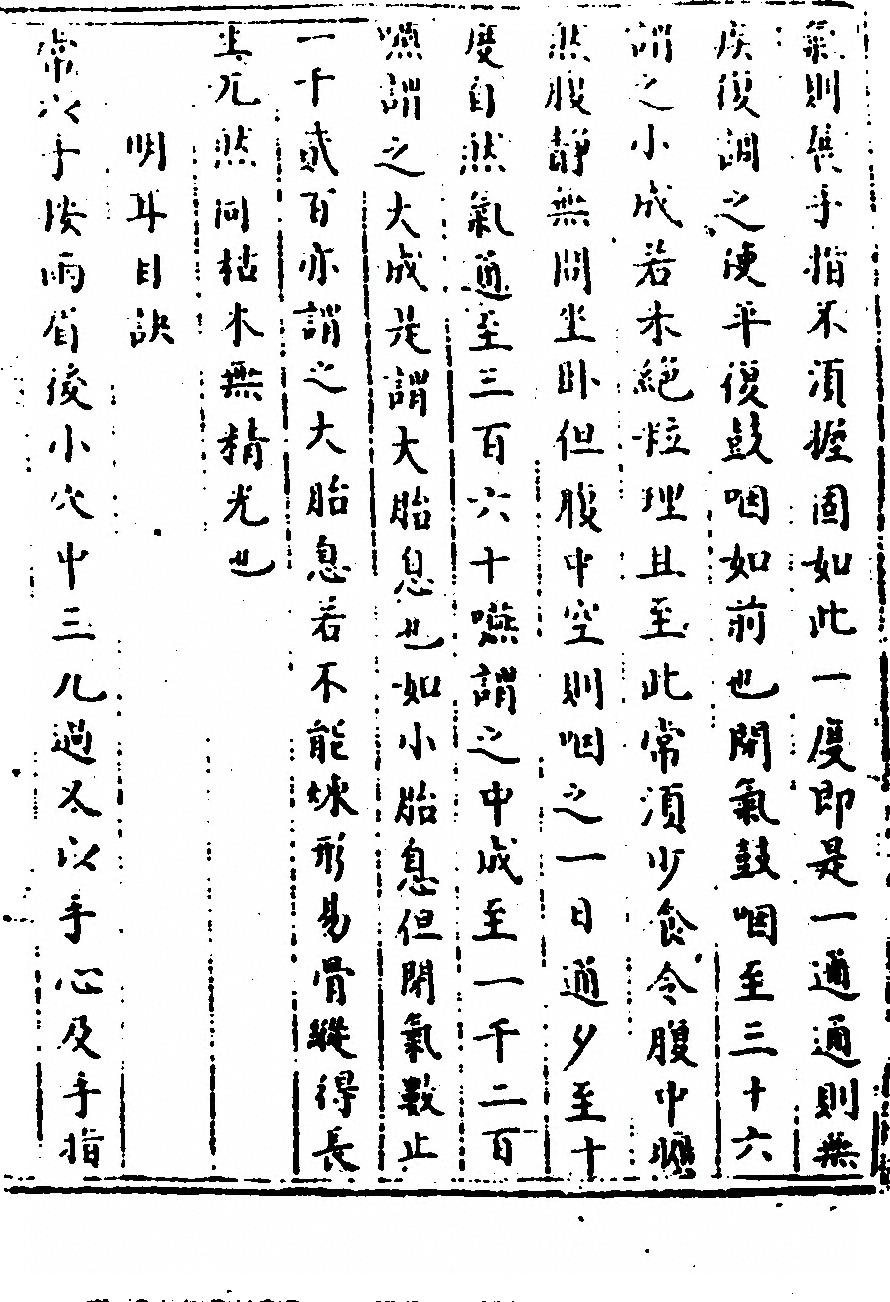 氣則展手指不須握固如此一度即是一通通則無
疾復調之使平復鼓咽如前也閉氣鼓咽至三十六
謂之小成若未絕粒理且至此常須少食令腹中曠
然腹靜無問坐卧但腹中空則咽之一日通夕至十
度自然氣通至三百六十嚥謂之中成至一千二百
嚥謂之大成是謂大胎息也如小胎息但閉氣數止
一千貳百亦謂之大胎息若不能煉形易骨縱得長
生兀然同枯木無精光也
明耳目訣
常以手按兩眉後小穴中三九過又以手心及手指